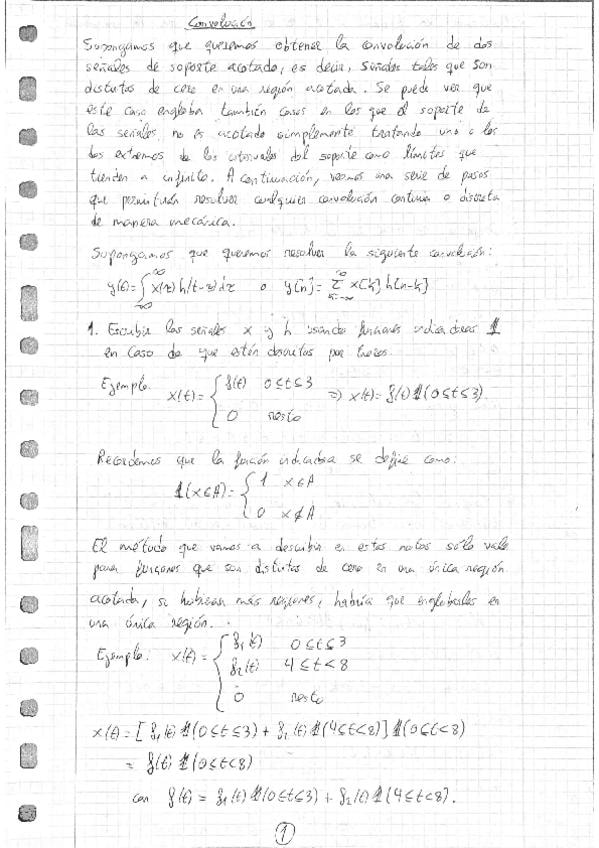 Convolución
Supongamos que queremos obtener la convolución de dos
señales de soporte acotado, es decir, señales tales que son
distintas de cero en una región acotada. Se puede ver que
este caso engloba también casos en los que el soporte de
las señales no es acotado simplemente tratando uno o los
dos extremos de los intervalos del soporte como límites que
tienden a infinito. A continuación, veamos una serie de pasos
que permitirán resolver cualquier convolución continua o discreta
de manera mecánica.
Supongamos que queremos resolver la siguiente convolución:
y(t)=∫_{-∞}^{∞} x(τ) h(t-τ) dτ o y[n]= Σ_{k=-∞}^{∞} x[k] h[n-k]
1. Escribir las señales x y h usando funciones indicadoras 𝟙
en caso de que estén descritas por trozos.
Ejemplo. x(t)= { f(t) 0≤t≤3 ⇒ x(t)= f(t) 𝟙(0≤t≤3)
0 resto
Recordemos que la función indicadora se define como:
𝟙(x∈A)= { 1 x∈A
0 x∉A
El método que vamos a describir en estas notas sólo vale
para funciones que son distintas de cero en una única región
acotada, si hubieran más regiones, habría que englobarlas en
una única región.
Ejemplo. x(t)= { f₁(t) 0≤t≤3
f₂(t) 4≤t<8
0 resto
x(t)= [ f₁(t) 𝟙(0≤t≤3) + f₂(t) 𝟙(4≤t<8)] 𝟙(0≤t<8)
= f(t) 𝟙(0≤t<8)
con f(t) = f₁(t) 𝟙(0≤t≤3) + f₂(t) 𝟙(4≤t<8).
1